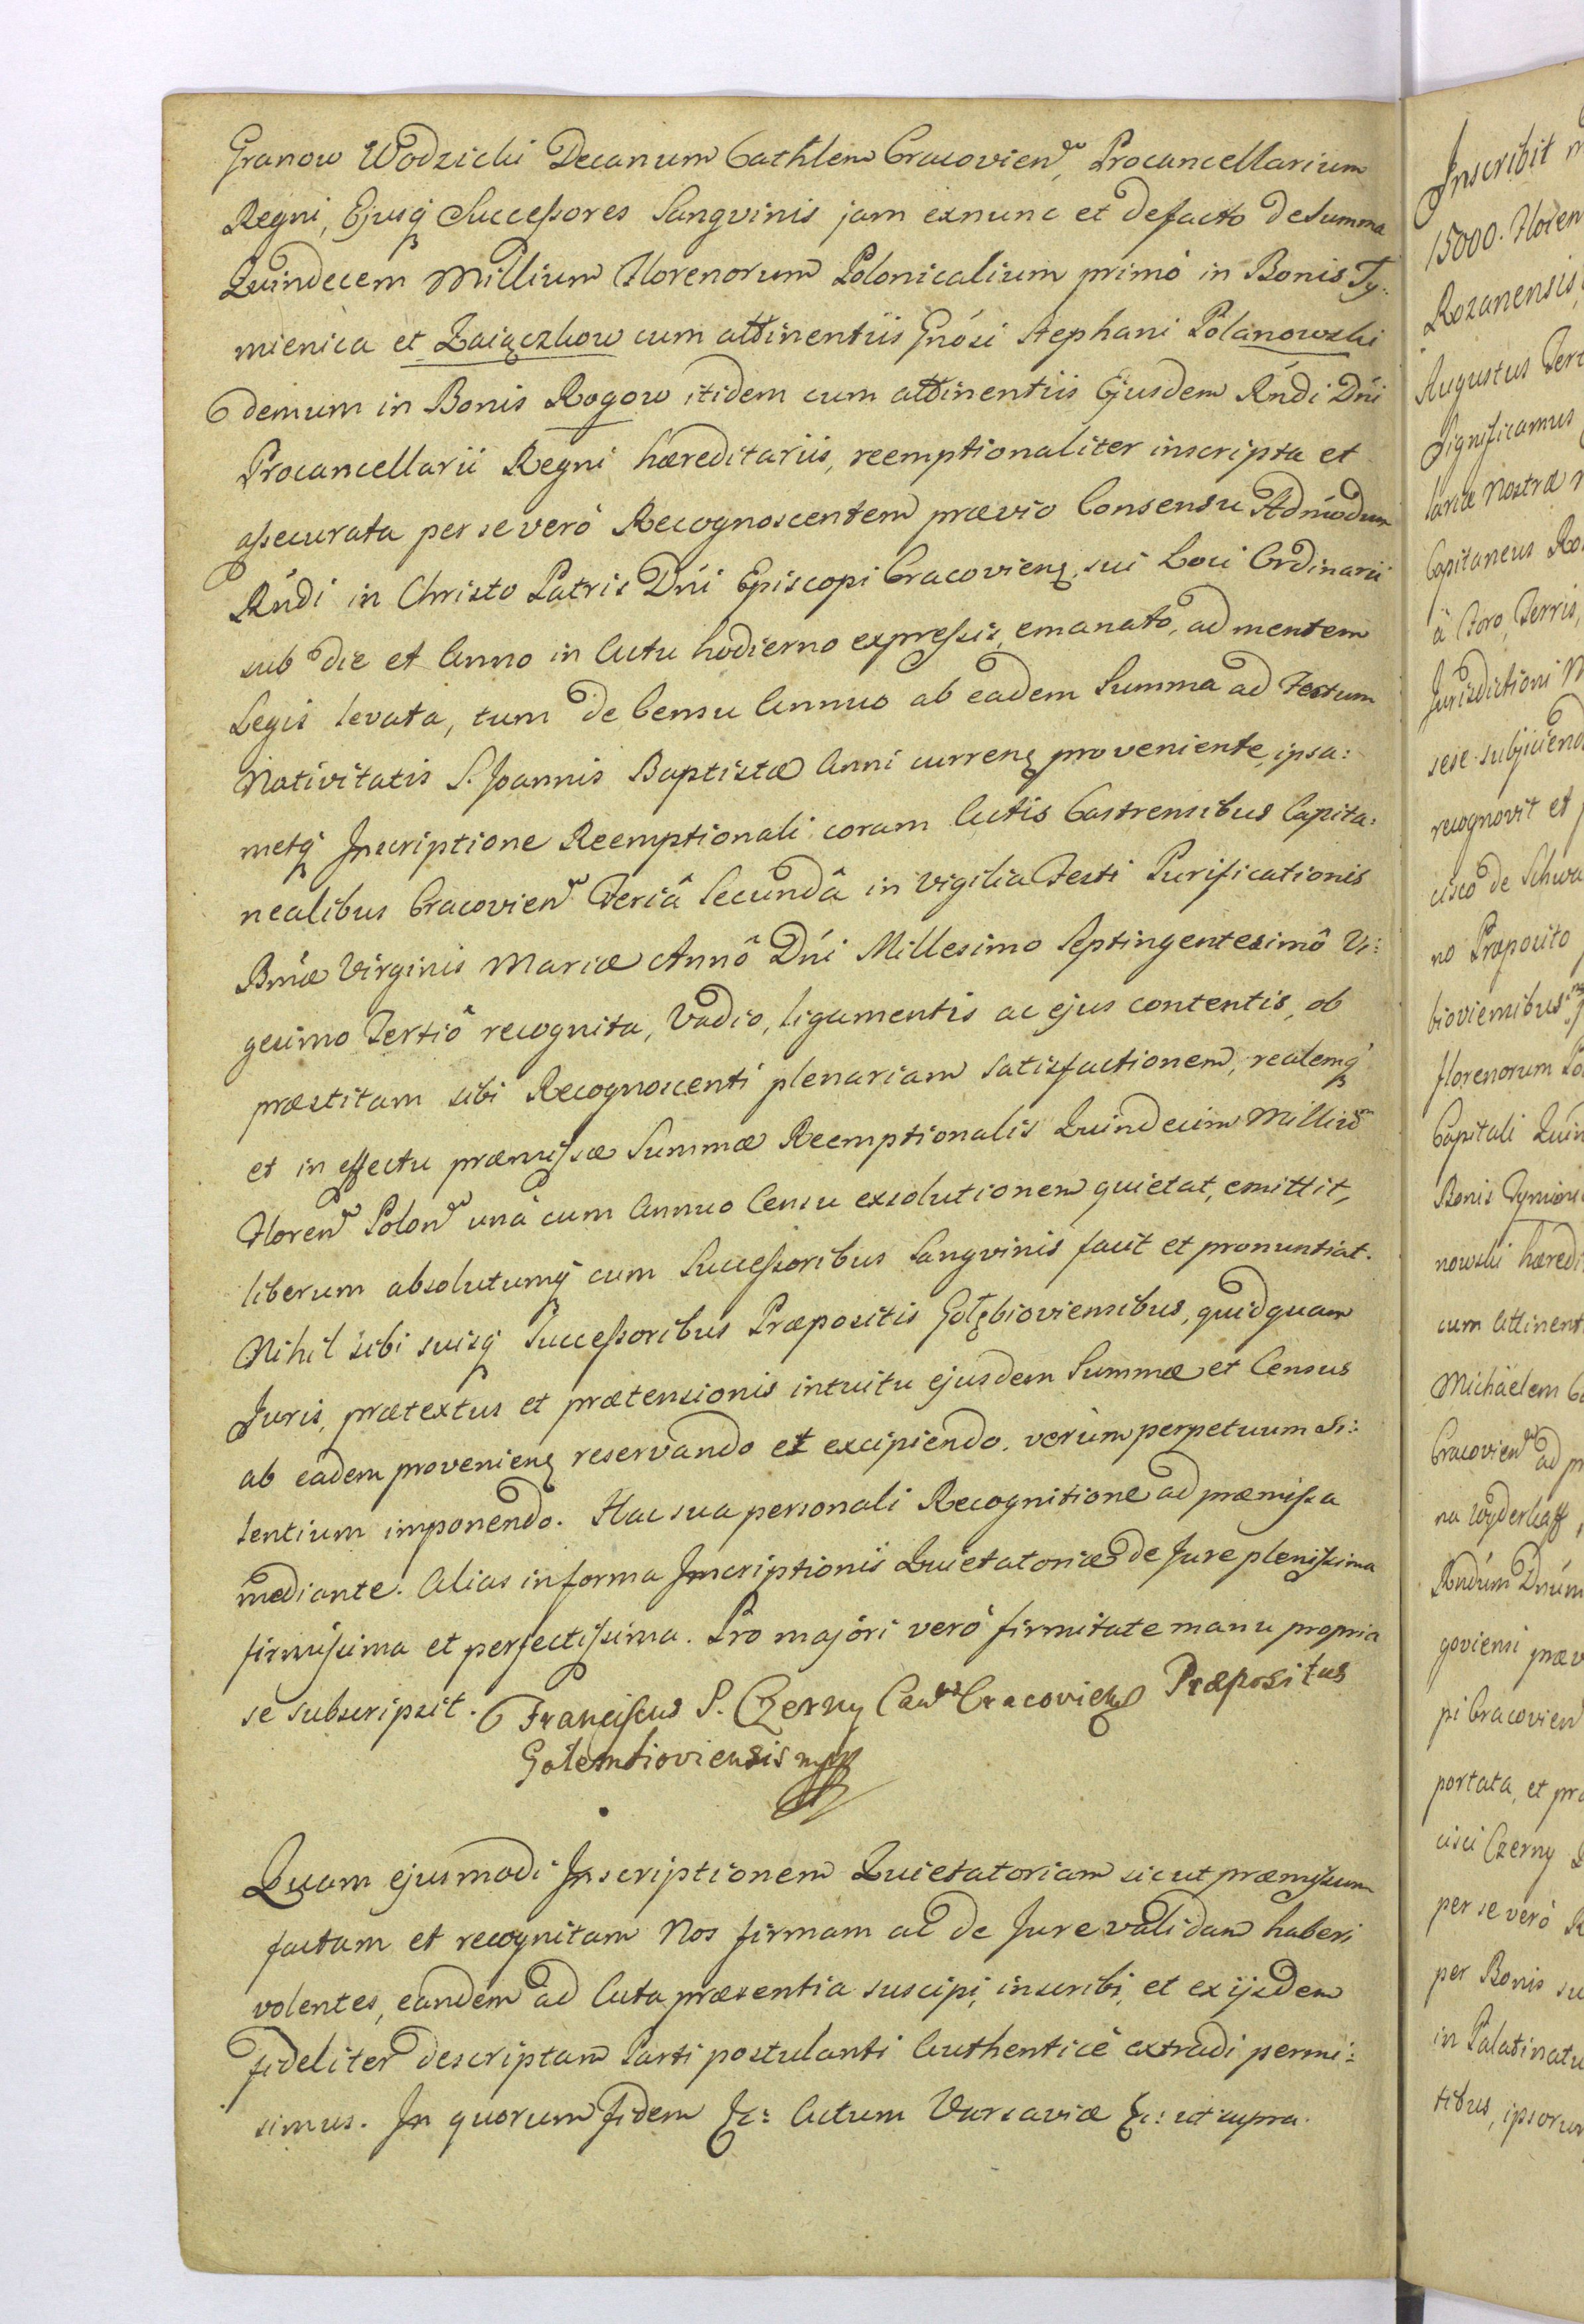 Granow Wodzicki Decanum Cathlem Cracovien, Procancellarium
Regni, Ejusq Successores Sangvinis jam exnunc et defacto de Summa
Quindecem Millium Florenorum Polonicalium primò in Bonis Ty:
mienica et Zaiączkow cum attinentiis Gnósi Stephani Polanowski
demum in Bonis Rogow itidem cum attinentiis Ejusdem Rńdi Dńi
Procancellarii Regni hæreditariis, reemptionaliter inscripta et
assecurata per se verò Recognoscentem prævio Consensu Admódum
Rńdi in Christo Patris Dńi Episcopi Cracovien, sui Loci Ordinarii
sub die et Anno in Actu hodierno expressis, emanato, ad mentem
Legis levata, tum de Censu Annuo ab eadem Summa ad Festum
Nativitatis S. Joannis Baptistæ Anni curren proveniente, ipsa:
metq Inscriptione Reemptionali coram Actis Castrensibus Capita:
nealibus Cracovien Feriâ Secundâ in Vigilia Festi Purificationis
Bmæ Virginis Mariæ Annô Dńi Millesimo Septingentesimô Vi:
gesimo Tertiô recognita, Vadio, ligamentis ac ejus contentis, ob
præstitam sibi Recognoscenti plenariam satisfactionem, realemq
et in effectu præmissæ Summæ Reemptionalis Quindecim Milliū
Floren Polon unà cum Annuo Censu exsolutionem quietat, emittit,
liberum absolutumq cum Successoribus Sangvinis facit et pronuntiat.
Nihil sibi suisq Successoribus Præpositis Gołębioviensibus, quidquam
Juris, prætextus et prætensionis intuitu ejusdem Summæ et Census
ab eadem provenien reservando et excipiendo, verùm perpetuum Si:
lentium imponendo. Hac sua personali Recognitione ad præmissa
mediante. Alias in forma Inscriptionis Quietatoriæ de Jure plenissima
firmissima et perfectissima. Pro majóri verò firmitate manu propria
se subscripsit. Franciscus S. Czerny Can Cracovien Præpositus
Golembioviensis mpp
Quam ejusmodi Inscriptionem Quietatoriam sicut præmissum
factam et recognitam Nos firmam ac de Jure validam haberi
volentes, eandem ad Acta præsentia suscipi, inscribi, et ex ijsdem
fideliter descriptam Parti postulanti Authenticè extradi permi:
simus. In quorum Fidem &c: Actum Varsaviæ &c: ut supra.
Inscribit
15000. Floren
Rozanensis
Augustus Ter
Significamus
lariæ Nostræ
Capitaneus Ro
à Foro, Terris,
Jurisdictioni
sese subjiciend
recognovit et
cisco de Schwa
no Præposito
bioviensibus
florenorum Po
Capitali Quin
Bonis Tymieni
nowski hæredi
cum Attinent
Michaelem
Cracovien ad
na Wyderkaff,
Rńdum Dńum
goviensi præv
pi Cracovien
portata, et pr
cisci Czerny
per se verò R
per Bonis su
in Palatinatu
tibus, ipsorum